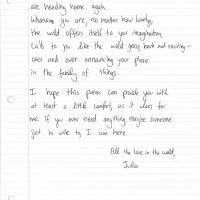 are heading home again.
Whoever you are, no matter how lonely,
the world offers itself to your imagination,
calls to you like the wild geese, harsh and exciting –
over and over announcing your place
in the family of things.
I hope this poem can provide you with
at least a little comfort, as it does for
me. If you ever need anything, maybe someone
just to write to, I am here.
All the love in the world,
Julia